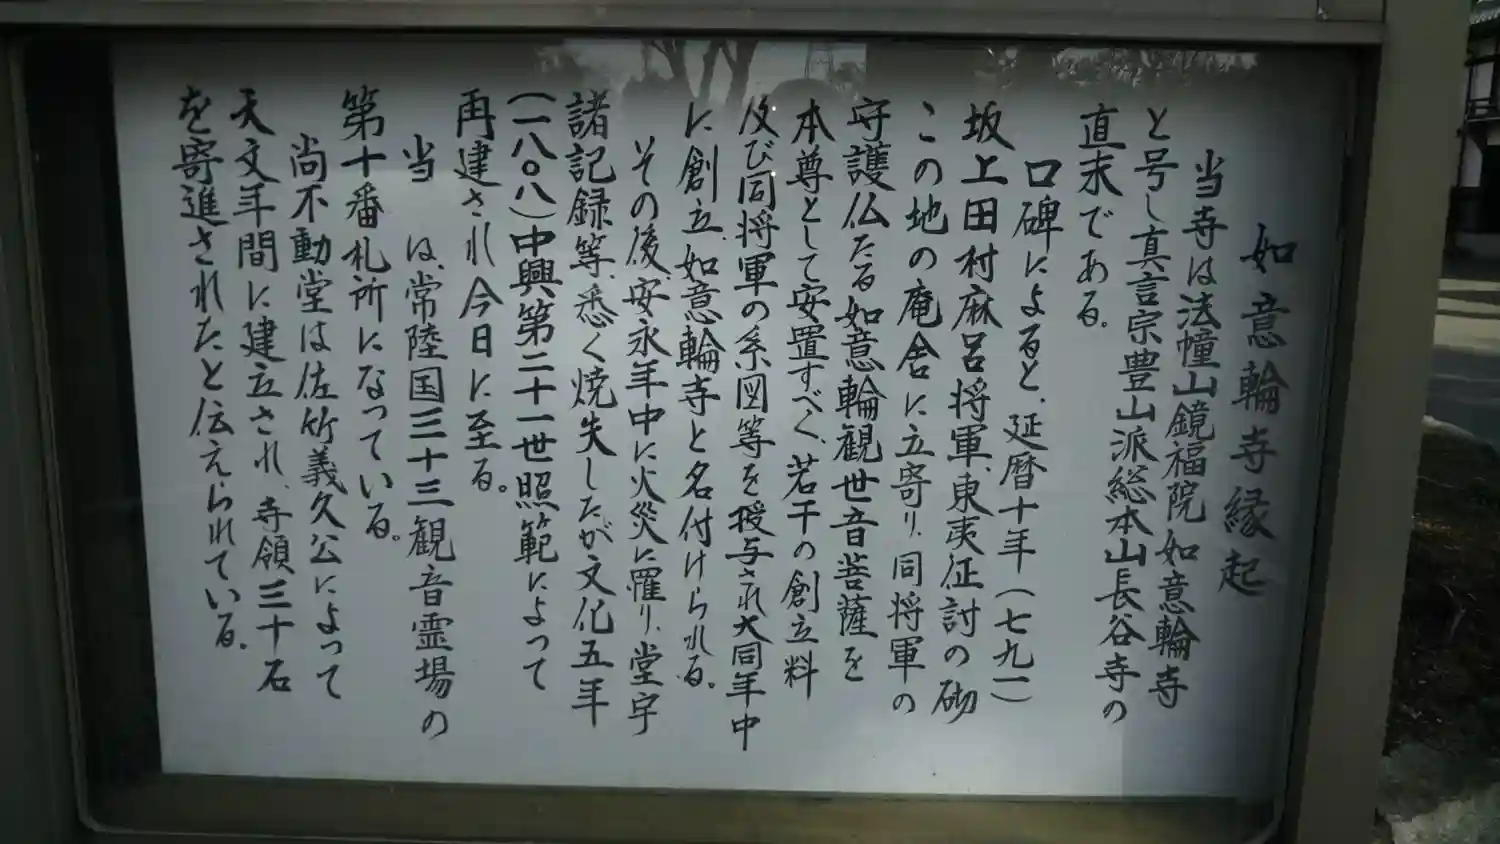 如意輪寺縁起
当寺は法幢山鏡福院如意輪寺
と号し真言宗豊山派総本山長谷寺の
直末である。
口碑によると、延暦十年(七九一)
坂上田村麻呂将軍、東夷征討の砌
この地の庵舎に立寄り、同将軍の
守護仏たる如意輪観世音菩薩を
本尊として安置すべく、若干の創立料
及び同将軍の系図等を授与され大同年中
に創立、如意輪寺と名付けられる。
その後安永年中に火災に罹り、堂宇
諸記録等、悉く焼失したが文化五年
(一八〇八)中興第二十一世照範によって
再建され今日に至る。
当 は、常陸国三十三観音霊場の
第十番札所になっている。
尚不動堂は佐竹義久公によって
天文年間に建立され、寺領三十石
を寄進されたと伝えられている。